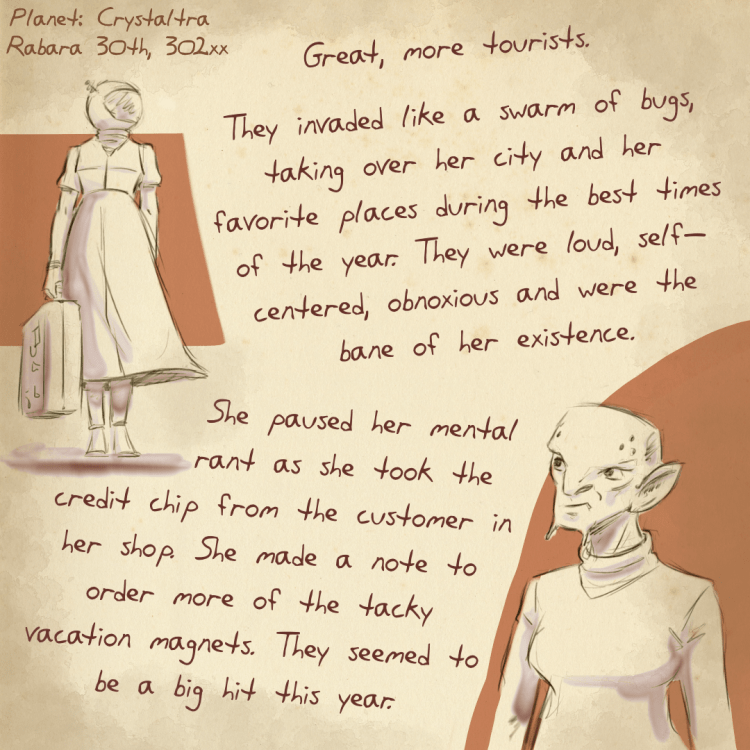 Planet: Crystaltra
Rabara 30th, 302xx
Great, more tourists.
They invaded like a swarm of bugs,
taking over her city and her
favorite places during the best times
of the year. They were loud, self-
centered, obnoxious and were the
bane of her existence.
She paused her mental
rant as she took the
credit chip from the customer in
her shop. She made a note to
order more of the tacky
vacation magnets. They seemed to
be a big hit this year.